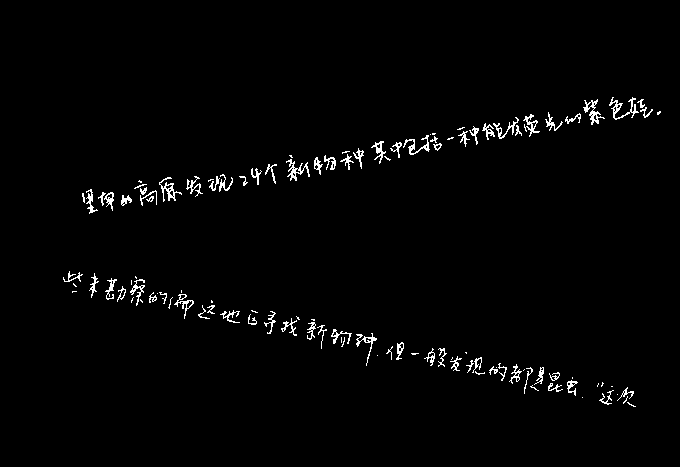 里埠的高原发现24个新物种其中包括一种能发荧光的紫色蛙。
些未勘察的偏远地区寻找新物种.但一般发现的都是昆虫.“这次